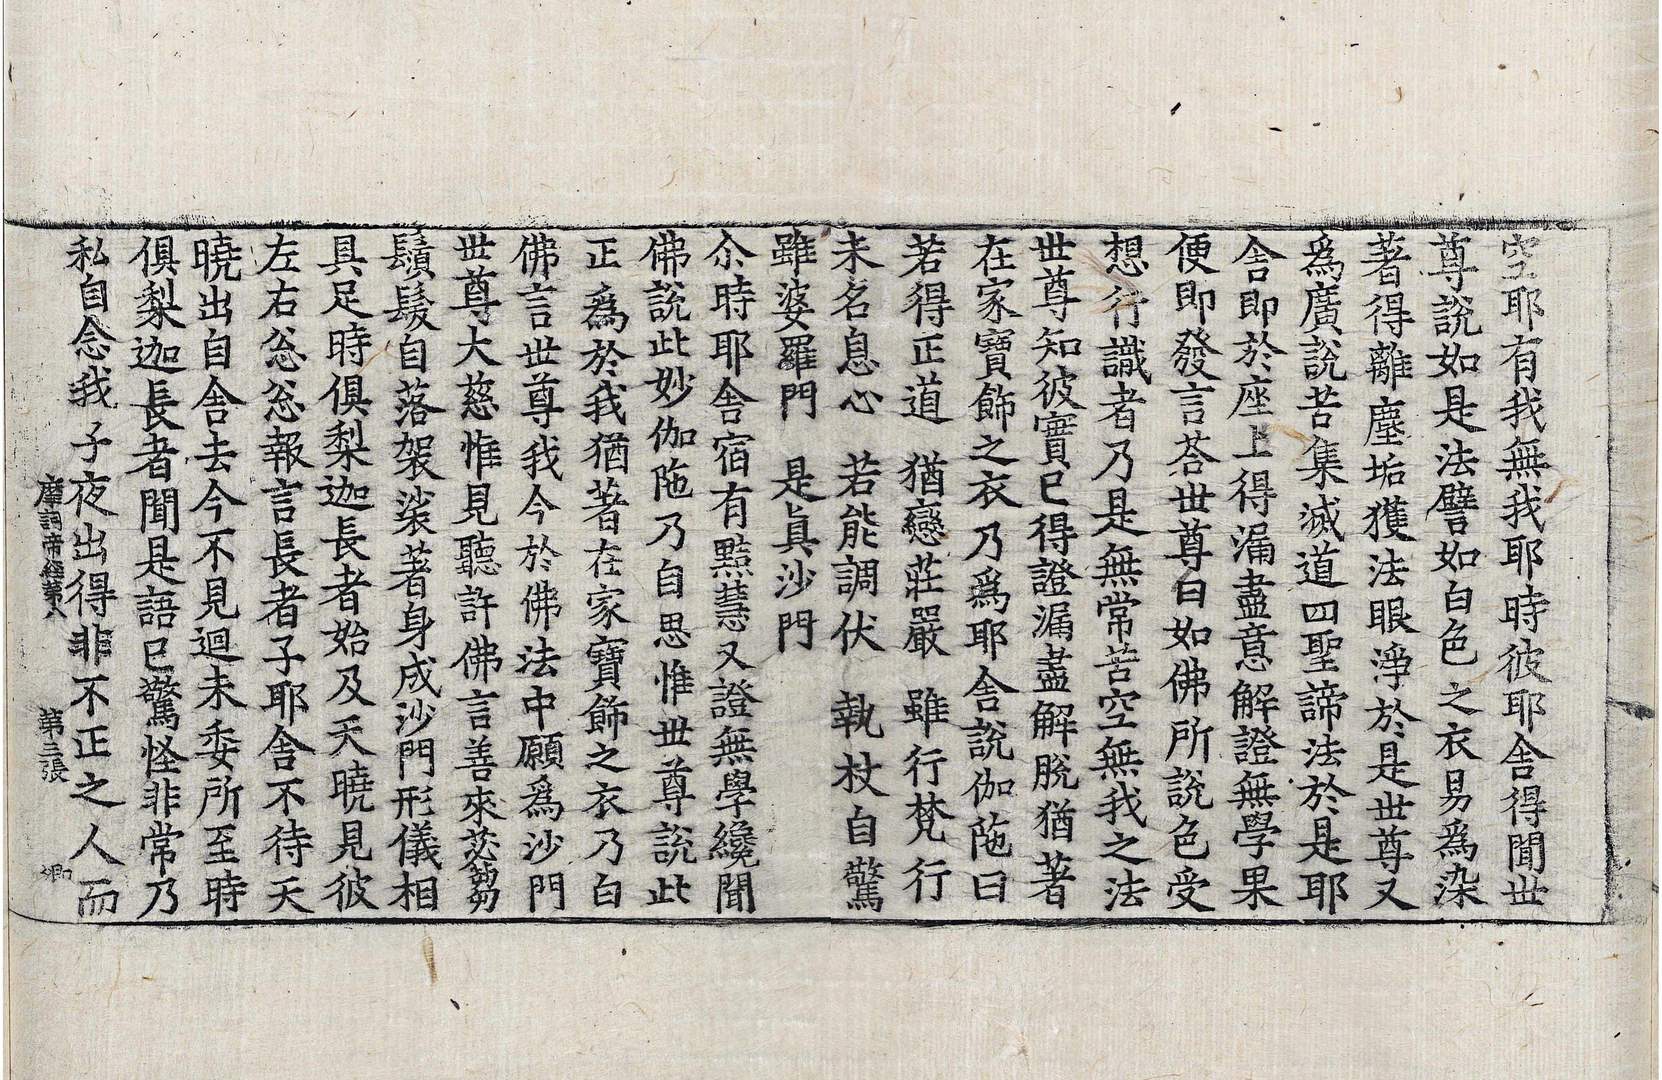 空耶有我無我耶時彼耶舍得聞世
尊說如是法譬如白色之衣易爲染
著得離塵垢獲法眼淨於是世尊又
爲廣說苦集滅道四聖諦法於是耶
舍即於座上得漏盡意解證無學果
便即發言荅世尊曰如佛所說色受
想行識者乃是無常苦空無我之法
世尊知彼實已得證漏盡解脫猶著
在家寶飾之衣乃爲耶舍說伽陁曰
若得正道　猶戀莊嚴　雖行梵行
未名息心　若能調伏　執杖自驚
雖婆羅門　是眞沙門
尒時耶舍宿有黠慧又證無學纔聞
佛說此妙伽陁乃自思惟世尊說此
正爲於我猶著在家寶飾之衣乃白
佛言世尊我今於佛法中願爲沙門
世尊大慈惟見聽許佛言善來苾芻
鬚髮自落袈裟著身成沙門形儀相
具足時俱梨迦長者始及天曉見彼
左右忩忩報言長者子耶舍不待天
曉出自舍去今不見迴未委所至時
俱梨迦長者聞是語已驚怪非常乃
私自念我子夜出得非不正之人而
第三張
卿